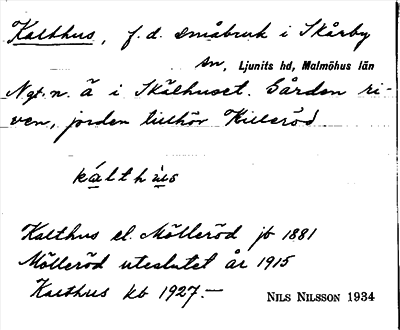 Kalthus, f. d. småbruk i Skårby
sn, Ljunits hd, Malmöhus län
Ngt. n. Ä i Skälhuset. Gården ri-
ven, jorden tillhör Killeröd
kálthùs
Kalthus el. Mölleröd jb 1881
Mölleröd uteslutet år 1915
Kalthus kb 1927.—
NILS NILSSON 1934